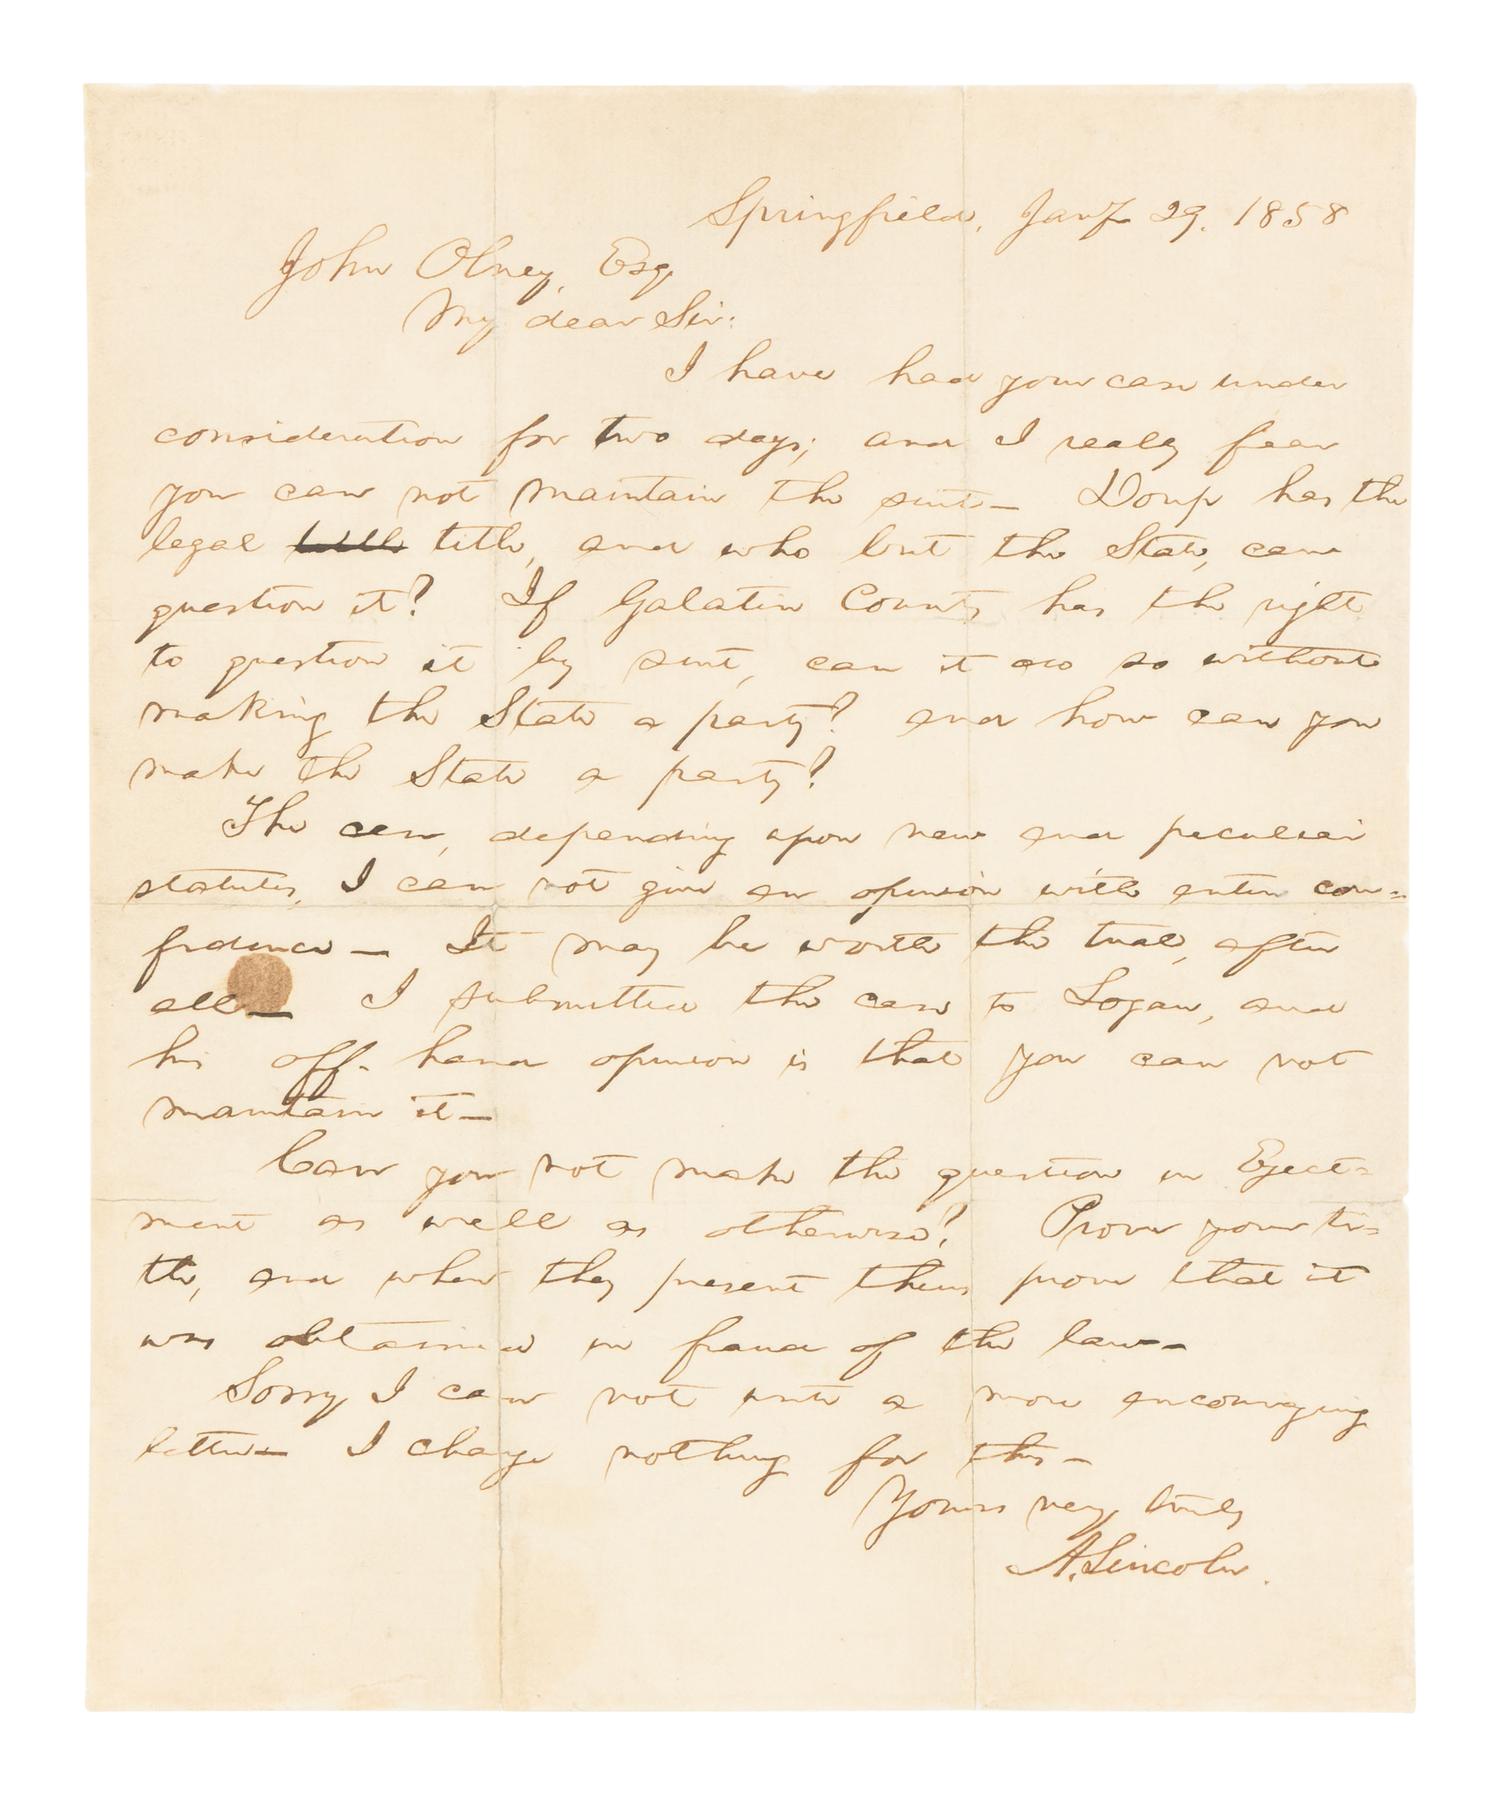 Springfield, Jany 29. 1858
John Olney, Esq
My dear Sir:
I have had your case under
consideration for two days; and I really fear
you can not maintain the suit— Doup has the
legal title, and who but the State, can
question it? If Galatin County has the right
to question it by suit, can it do so without
making the State a party? and how can you
make the State a party?
The case, depending upon new and peculiar
statutes, I can not give an opinion with entire con=
fidence— It may be worth the trial, after
all— I submitted the case to Logan, and
his off-hand opinion is that you can not
maintain it—
Can you not make the question in Eject=
ment as well as otherwise? Prove your ti=
tle, and when they present theirs prove that it
was obtained in fraud of the law—
Sorry I can not write a more encouraging
letter— I charge nothing for this—
Yours very truly
A. Lincoln.